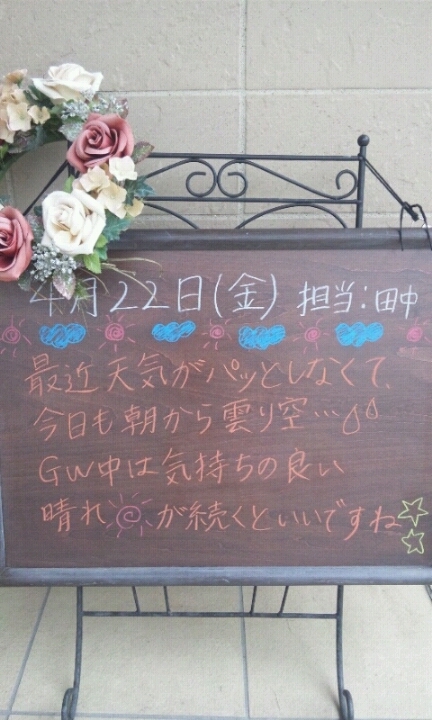 4月22日(金) 担当:田中
最近天気がパッとしなくて、
今日も朝から曇り空…
GW中は気持ちの良い
晴れが続くといいですね